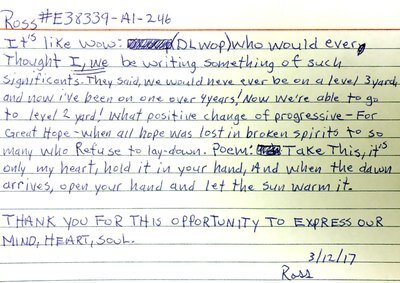 Ross#E38339-A1-246
It's like wow: (DLWOP) who would ever
Thought I, we be writing something of such
significants. They said, we would never ever be on a level 3 yard,
and now i've been on one over 4years! Now we're able to go
to level 2 yard! What positive change of progressive-For
Great Hope-when all hope was lost in broken spirits to so
many who Refuse to lay-down. Poem: Take This, it's
only my heart, hold it in your hand, And when the dawn
arrives, open your hand and let the sun warm it.
THANK YOU FOR THIS OPPORTUNITY TO EXPRESS OUR
MIND, HEART, SOUL.
3/12/17
Ross